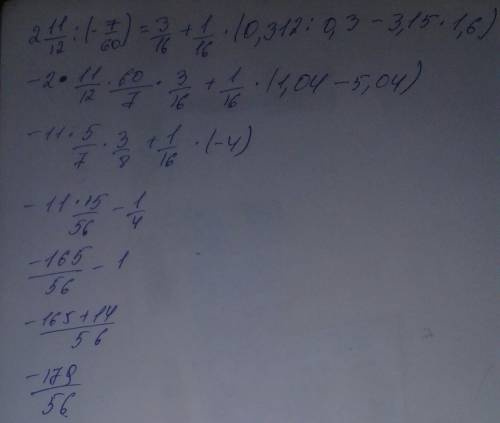 2 11/12 : (-7/60) = 3/16 + 1/16 · (0,312 : 0,3 - 3,15 · 1,6)
-2 · 11/12 · 60/7 · 3/16 + 1/16 · (1,04 - 5,04)
-11 · 5/7 · 3/8 + 1/16 · (-4)
-11 · 15/56 - 1/4
-165/56 - 1
-165+14/56
-179/56